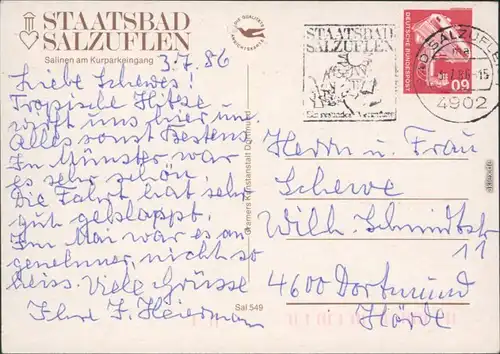 STAATSBAD
SALZUFLEN
Salinen am Kurparkeingang
3.7.86
Liebe Schewes!
Tropische Hitze
wirft uns hier um.
Alles sonst Bestens.
In Münster war
es sehr schön.
Die Fahrt hat sehr
gut geklappt.
Im Mai war es an
genehmer nicht so
heiss. Viele Grüsse
Ihre F. Heiermann
Sal 549
Cramers Kunstanstalt Dortmund
STAATSBAD
SALZUFLEN
BAD SALZUFLEN
7.86-15
4902
DEUTSCHE BUNDESPOST
60
Herrn u. Frau
Schewe
Wilh. Schmidtstr
11
4600 Dortmund
Hörde